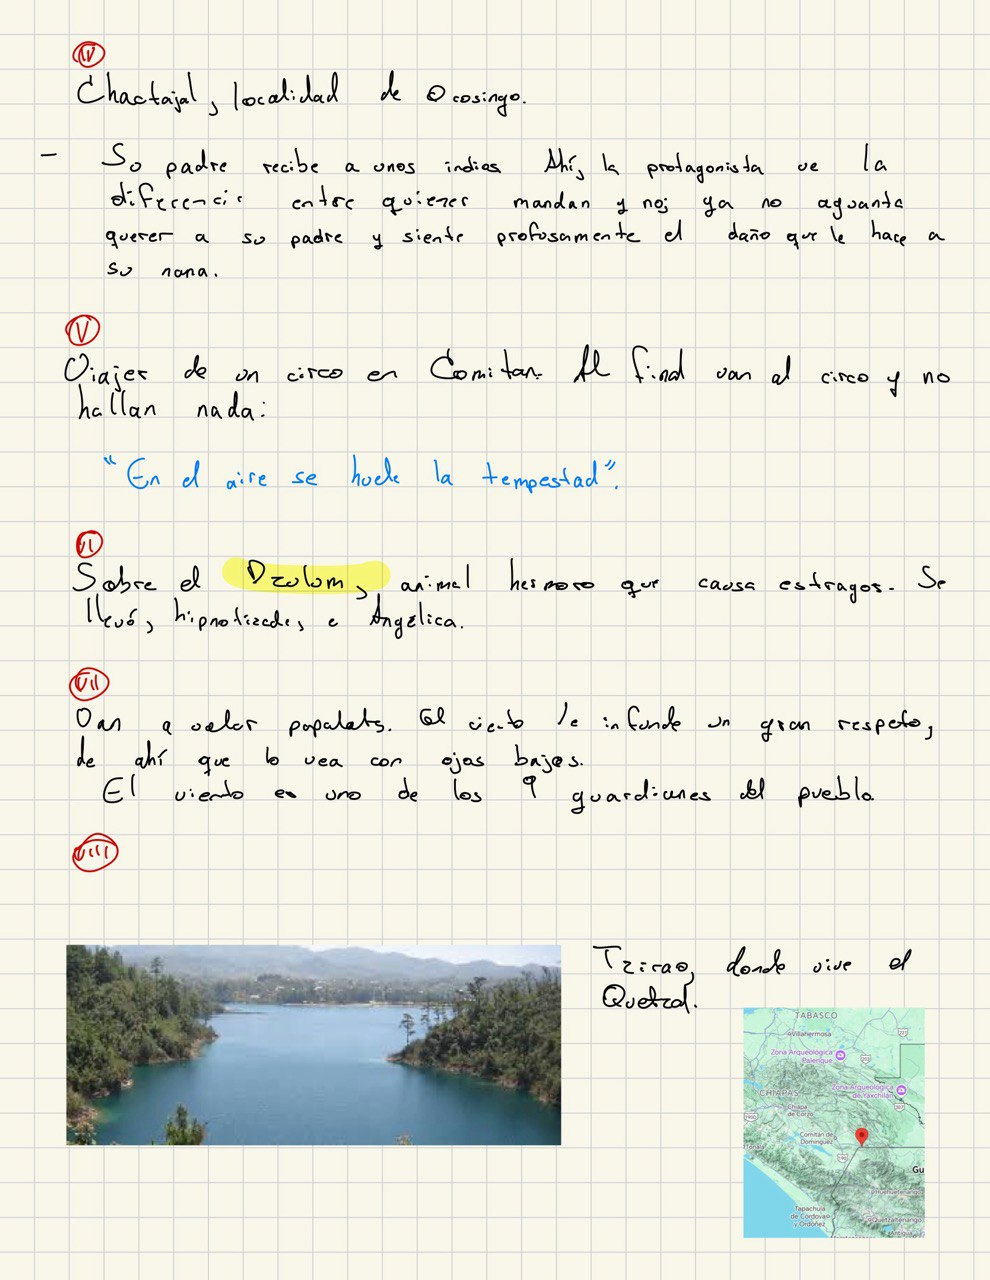 IV
Chactajal, localidad de Ocosingo.
- Su padre recibe a unos indios Ahí, la protagonista ve la
diferencia entre quienes mandan y no; ya no aguanta
querer a su padre y siente profusamente el daño que le hace a
su nana.
V
Viajes de un circo en Comitan. Al final van al circo y no
hallan nada:
"En el aire se huele la tempestad".
VI
Sobre el Dzulum, animal hermoso que causa estragos. Se
llevó, hipnotizada, a Angélica.
VII
Van a volar papalots. El viento le infunde un gran respeto,
de ahí que lo vea con ojos bajos.
El viento es uno de los 9 guardianes del pueblo
VIII
Tziscao, donde vive el
Quetzal.
TABASCO
Villahermosa
Zona Arqueológica
Palenque
203
Zona Arqueológica
de Yaxchilán
CHIAPAS
307
Chiapa
de Corzo
Comitán de
Domínguez
Tonalá
190
Gu
Huehuetenango
Tapachula
de Córdova
y Ordóñez
Quetzaltenango
Antigua